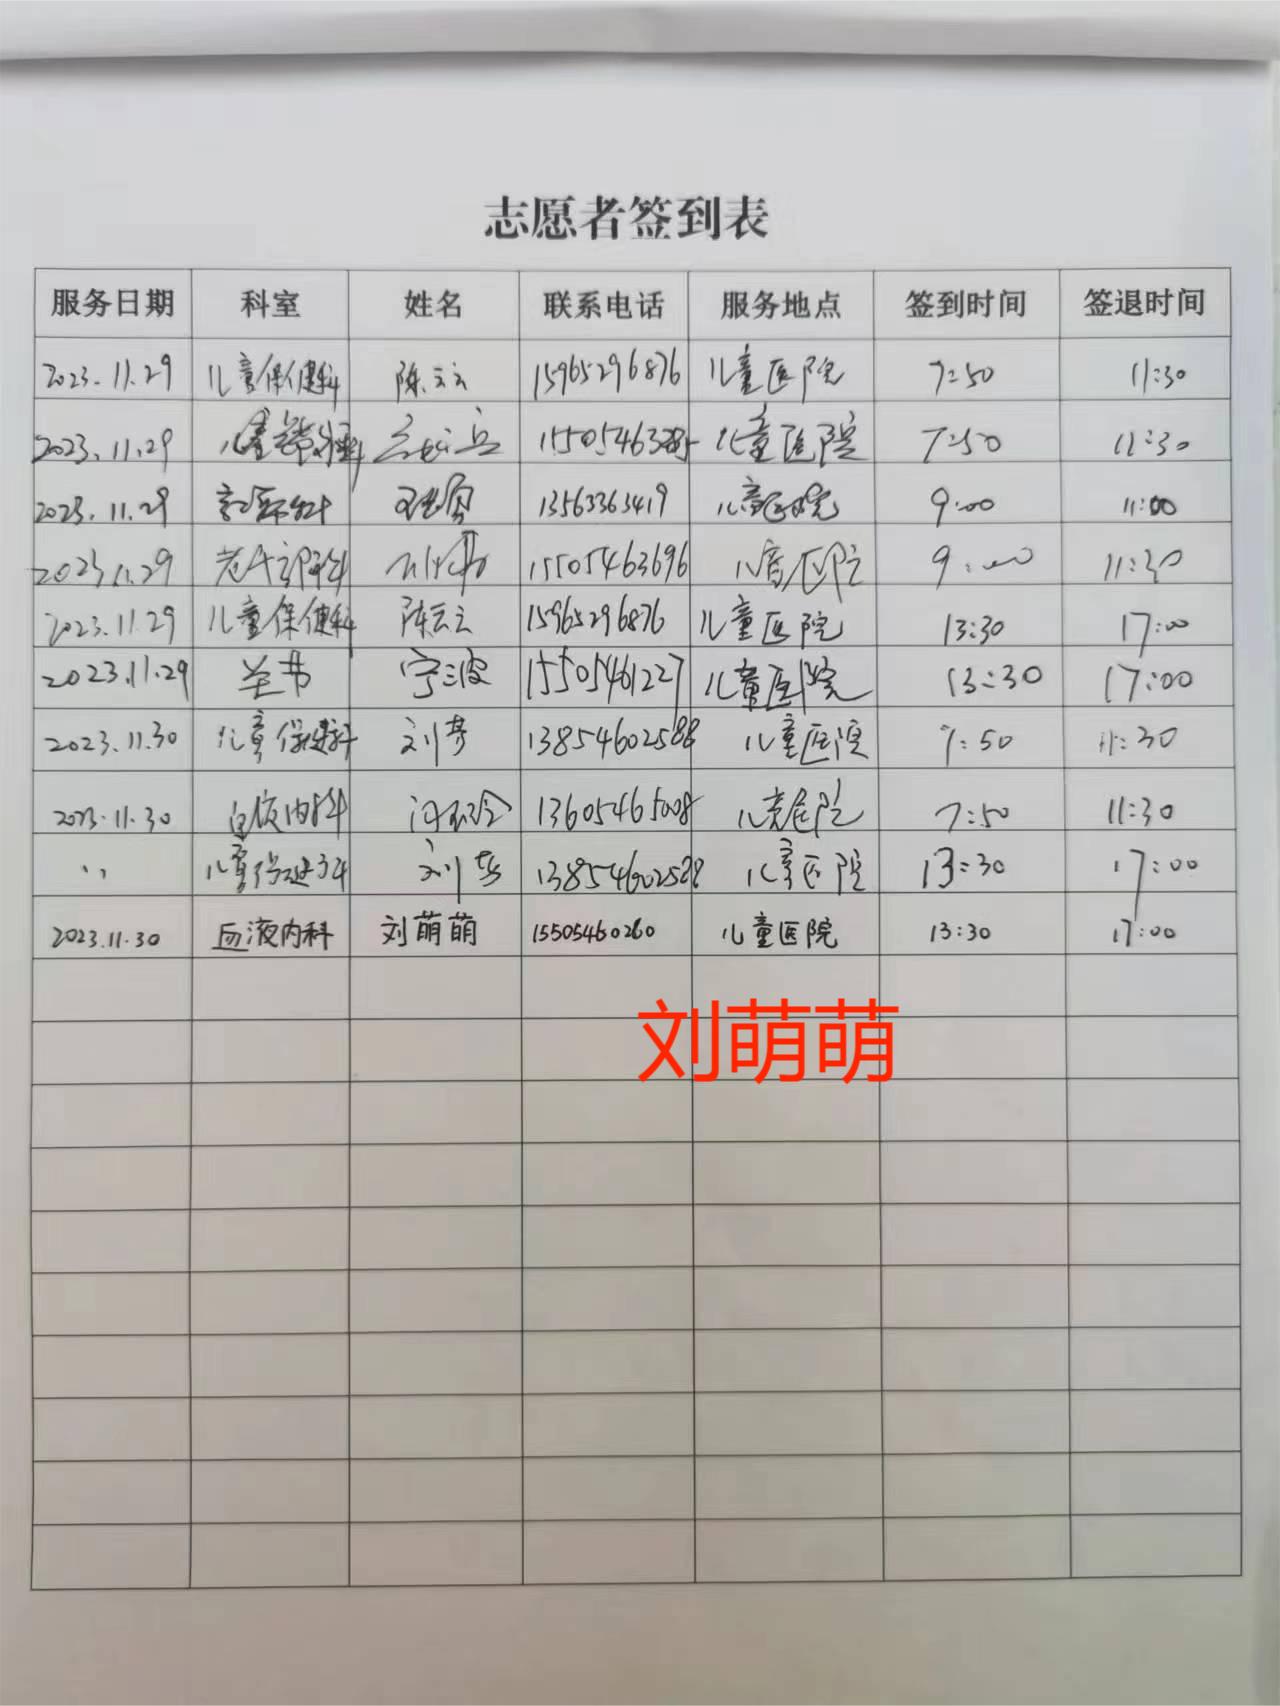 志愿者签到表
服务日期 科室 姓名 联系电话 服务地点 签到时间 签退时间
2023.11.29 儿童保健科 陈云云 15965296876 儿童医院 7:50 11:30
2023.11.29 儿童 15505463285 儿童医院 7:50 11:30
2023.11.29 13563363419 儿童医院 9:00 11:00
2023.11.29 15505463696 儿童医院 9:00 11:30
2023.11.29 儿童保健科 陈云云 15965296876 儿童医院 13:30 17:00
2023.11.29 关节 宁波 15505461227 儿童医院 13:30 17:00
2023.11.30 儿童保健科 刘梦 13854602588 儿童医院 7:50 11:30
2023.11.30 血液内科 13605465008 儿童医院 7:50 11:30
,, 儿童保健科 刘梦 13854602588 儿童医院 13:30 17:00
2023.11.30 血液内科 刘萌萌 15505460260 儿童医院 13:30 17:00
刘萌萌